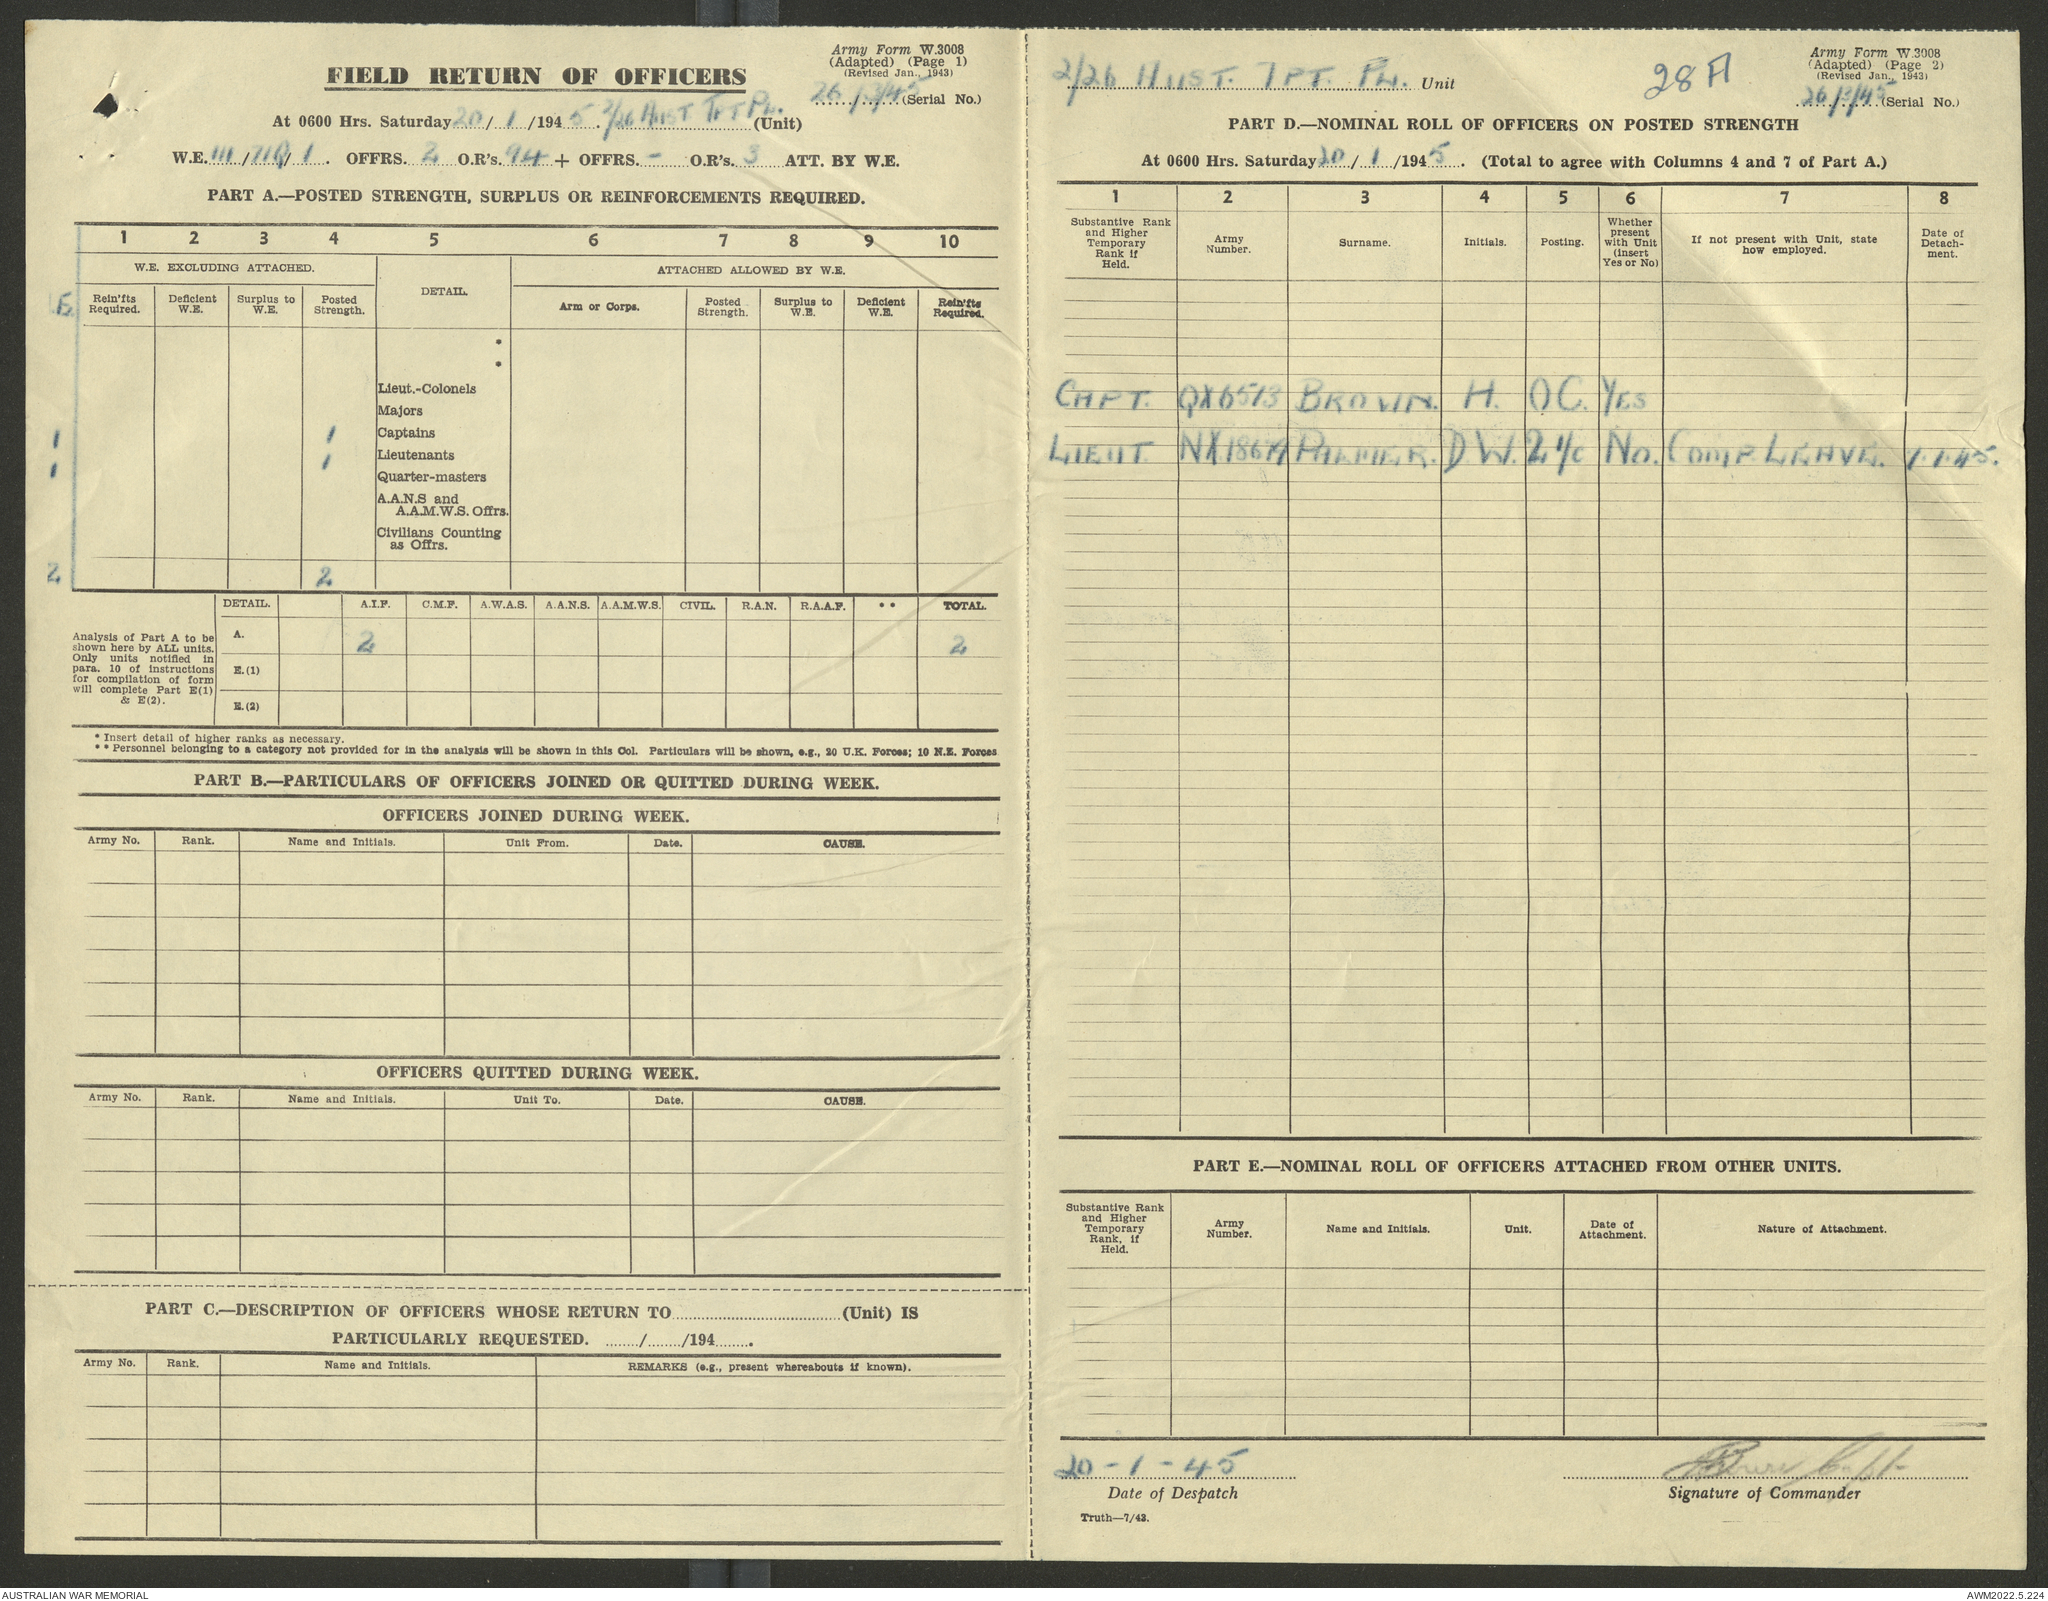 Army Form W.3008
(Adapted) (Page 1)
(Revised Jan., 1943)
FIELD RETURN OF OFFICERS
26/3/45 (Serial No.)
At 0600 Hrs. Saturday 20/1/1945. 2/26 Aust Tpt Pl. (Unit)
W.E. III/71 /1. OFFRS. 2 O.R's. 94 + OFFRS. - O.R's. 3 ATT. BY W.E.
PART A.—POSTED STRENGTH, SURPLUS OR REINFORCEMENTS REQUIRED.
1 2 3 4 5 6 7 8 9 10
W.E. EXCLUDING ATTACHED.
DETAIL.
ATTACHED ALLOWED BY W.E.
Rein'fts Required.
Deficient W.E.
Surplus to W.E.
Posted Strength.
Arm or Corps.
Posted Strength.
Surplus to W.E.
Deficient W.E.
Rein'fts Required.
*
*
Lieut.-Colonels
Majors
1 1 Captains
1 1 Lieutenants
Quarter-masters
A.A.N.S and
A.A.M.W.S. Offrs.
Civilians Counting
as Offrs.
2 2
DETAIL. A.I.F. C.M.F. A.W.A.S. A.A.N.S. A.A.M.W.S. CIVIL. R.A.N. R.A.A.F. ** TOTAL.
Analysis of Part A to be
shown here by ALL units.
Only units notified in
para. 10 of instructions
for compilation of form
will complete Part E(1)
& E(2).
A. 2 2
E.(1)
E.(2)
* Insert detail of higher ranks as necessary.
** Personnel belonging to a category not provided for in the analysis will be shown in this Col. Particulars will be shown, e.g., 20 U.K. Forces; 10 N.E. Forces
PART B.—PARTICULARS OF OFFICERS JOINED OR QUITTED DURING WEEK.
OFFICERS JOINED DURING WEEK.
Army No. Rank. Name and Initials. Unit From. Date. CAUSE.
OFFICERS QUITTED DURING WEEK.
Army No. Rank. Name and Initials. Unit To. Date. CAUSE.
PART C.—DESCRIPTION OF OFFICERS WHOSE RETURN TO (Unit) IS
PARTICULARLY REQUESTED. / /194 .
Army No. Rank. Name and Initials. REMARKS (e.g., present whereabouts if known).
Army Form W.3008
(Adapted) (Page 2)
(Revised Jan., 1943)
2/26 Aust. Tpt. Pl. Unit
28A
26/3/45 (Serial No.)
PART D.—NOMINAL ROLL OF OFFICERS ON POSTED STRENGTH
At 0600 Hrs. Saturday 20/1/1945. (Total to agree with Columns 4 and 7 of Part A.)
1 2 3 4 5 6 7 8
Substantive Rank and Higher Temporary Rank if Held.
Army Number.
Surname.
Initials.
Posting.
Whether present with Unit (insert Yes or No)
If not present with Unit, state how employed.
Date of Detachment.
CAPT. QX6513 BROWN. H. OC. YES
LIEUT. NX.18679 PALMER. D.W. 2 I/C NO. COMP. LEAVE. 1.1.45.
PART E.—NOMINAL ROLL OF OFFICERS ATTACHED FROM OTHER UNITS.
Substantive Rank and Higher Temporary Rank, if Held.
Army Number.
Name and Initials.
Unit.
Date of Attachment.
Nature of Attachment.
20-1-45
Date of Despatch
Brown Capt
Signature of Commander
Truth—7/43.
AUSTRALIAN WAR MEMORIAL
AWM2022.5.224